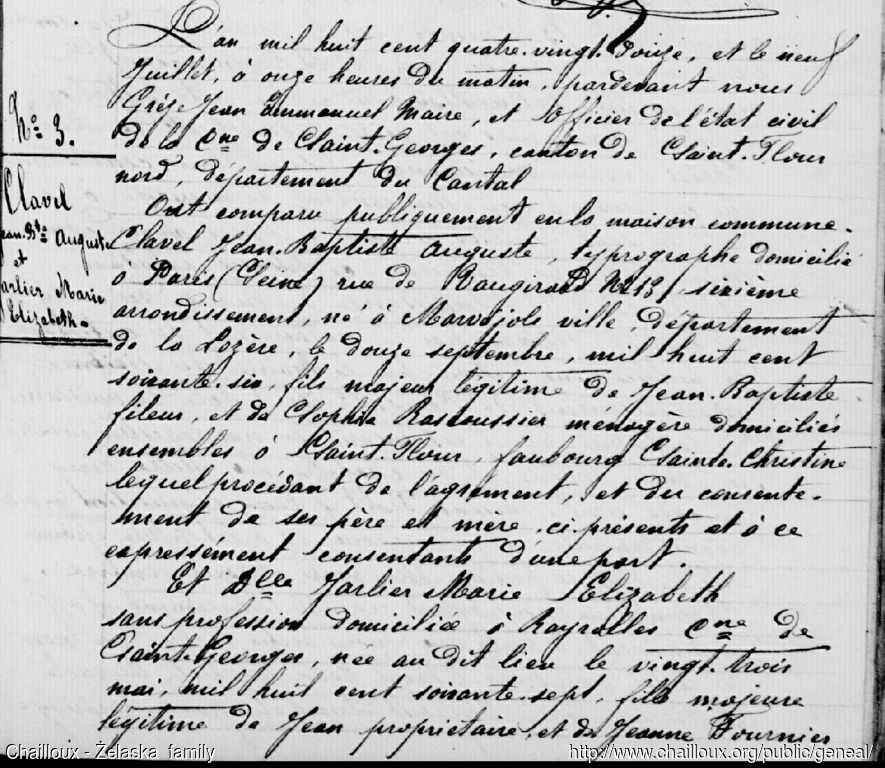 L'an mil huit cent quatre-vingt-douze, et le neuf
Juillet, à onze heures du matin, pardevant nous
Grèze Jean Emmanuel Maire, et Officier de l'état civil
de la Cne de Saint-Georges, canton de Saint-Flour
nord, département du Cantal
No 3.
Clavel
Jean Bte Auguste
et
Jarlier Marie
Elizabeth
Ont comparu publiquement en la maison commune.
Clavel Jean-Baptiste Auguste, typographe domicilié
à Paris (Seine) rue de Vaugirard No 13, sixième
arrondissement, né à Marvejols ville, département
de la Lozère, le douze septembre, mil huit cent
soixante-six, fils majeur légitime de Jean-Baptiste
fileur, et de Sophie Rascoussier ménagère domiciliés
ensembles à Saint-Flour, faubourg Sainte-Christine
lequel procédant de l'agrément, et du consente-
ment de ses père et mère, ci-présents et à ce
expressément consentants d'une part.
Et Dlle Jarlier Marie Elizabeth
sans profession domiciliée à Rayrolles Cne de
Saint-Georges, née au dit lieu le vingt-trois
mai, mil huit cent soixante-sept, fille majeure
légitime de Jean propriétaire, et de Jeanne Fournier
Chailloux - Żelaska family
http://www.chailloux.org/public/geneal/